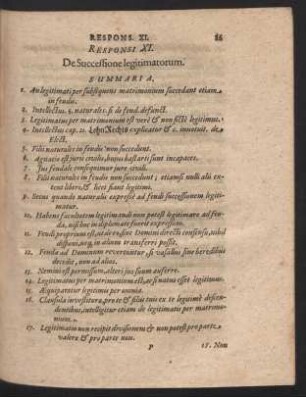 RESPONS. XI. 86
RESPONSI XI.
De Successione legitimatorum.
SUMMARIA.
1. An legitimati per subsequens matrimonium succedant etiam
in feudis.
2. Intellectus §. naturales. si de feud. defunct.
3. Legitimatus per matrimonium est verè & non fictè legitimus.
4. Intellectus cap. 21. Lehn Rechts explicatur & c. innotuit. de
Elect.
5. Filii naturales in feudis non succedunt.
6. Agnatio est juris civilis, bonus bastarti sunt incapaces.
7. Jus feudale consequimur jure civili.
8. Filii naturales in feudis non succedunt, etiamsi nulli alii ex-
tent liberi, & licet sint legitimi.
9. Secus quando naturalis expressè ad feudi successionem legiti-
matur.
10. Habens facultatem legitimandi non potest legitimare ad feu-
da, nisi hoc in diplomate fuerit expressum.
11. Feudi proprium est, ut sine Domini directi consensu, nihil
disponi, aeq; in alium transferri possit.
12. Feuda ad Dominum revertuntur, si vasallus sine heredibus
decedit, non ad alios.
13. Nemini est permissum, alteri jus suum auferre.
14. Legitimatus per matrimonium est, ac si natus esset legitimus.
15. Æquiparatur legitimis per omnia.
16. Clausula investitura, pro te & filiis tuis ex te legitimè descen-
dentibus, intelligitur etiam de legitimatis per matrimo-
nium.
17. Legitimatio non recipit divisionem & non potest pro parte
valere & pro parte non.
P 18. Non